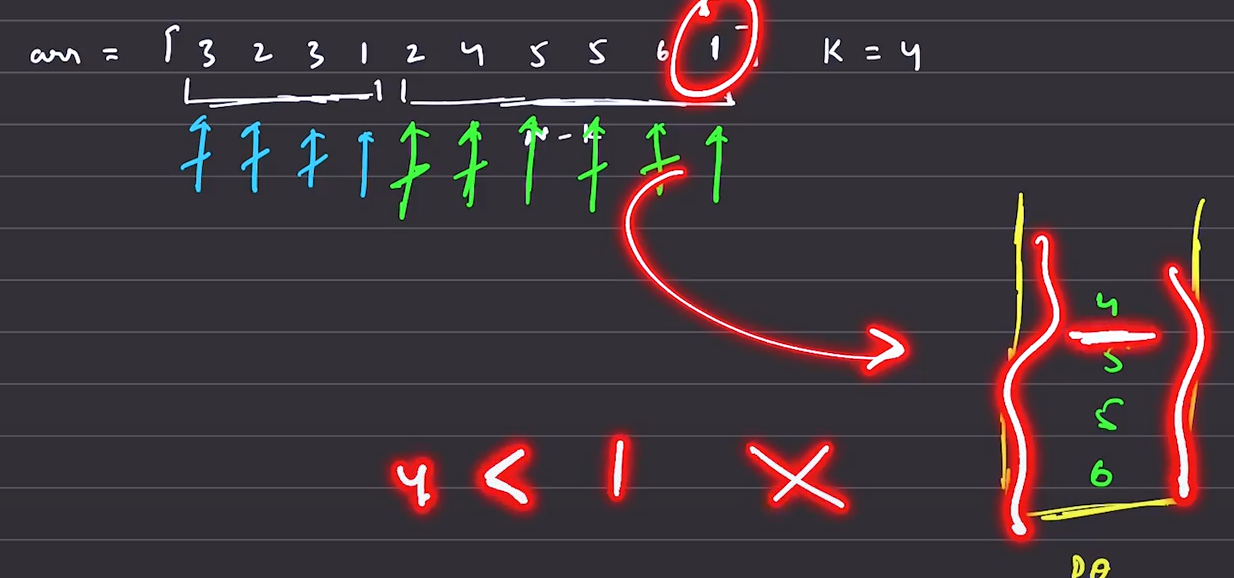 arr = [ 3 2 3 1 2 4 5 5 6 1 ] K = 4
N - K
4
5
5
6
4 < 1 X
PQ